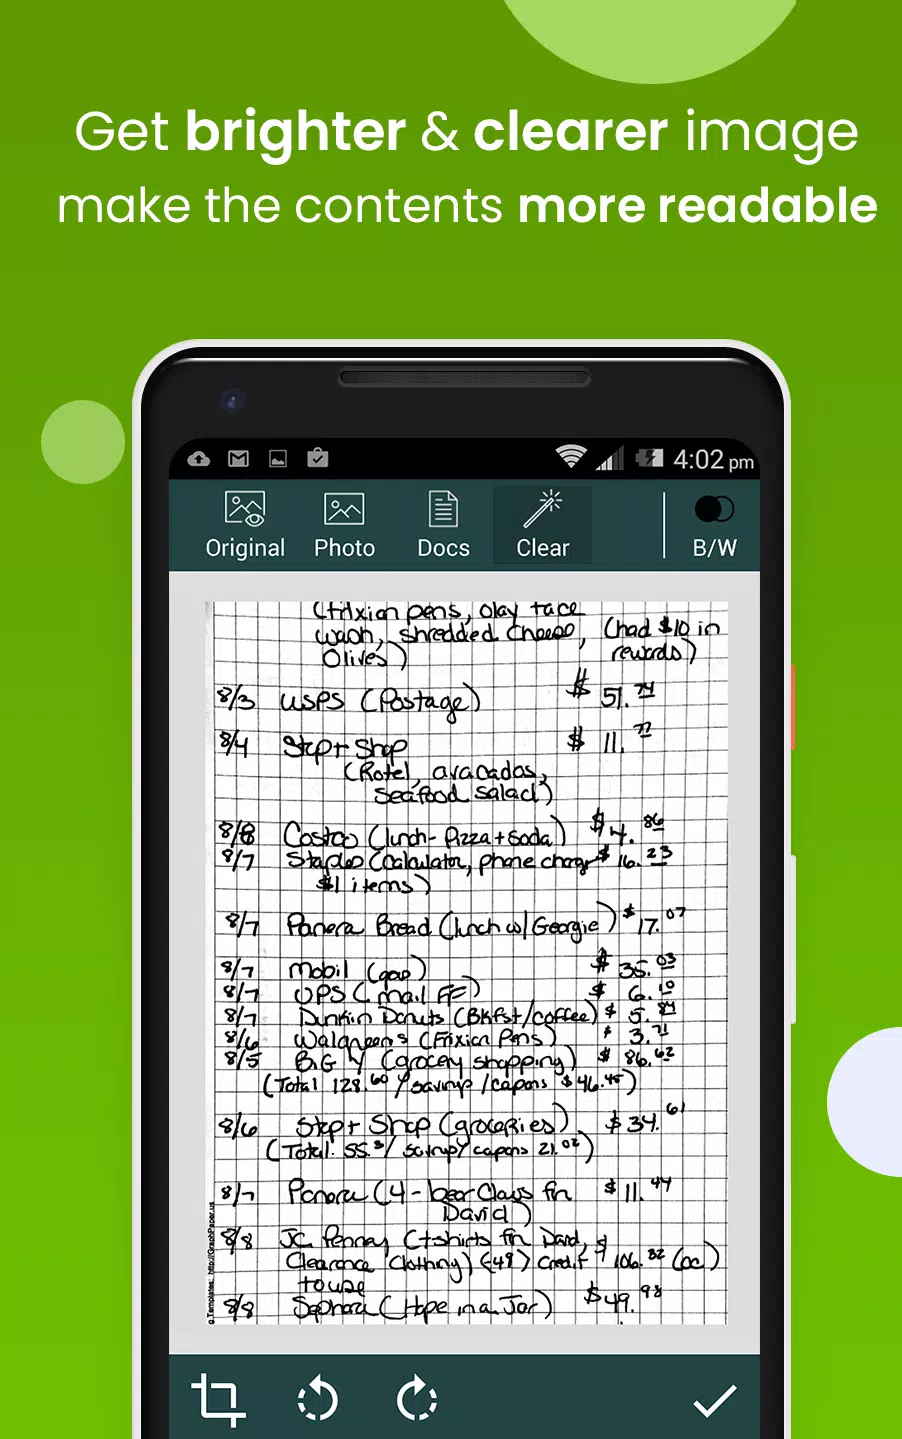 Get brighter & clearer image
make the contents more readable
4:02 pm
Original Photo Docs Clear B/W
(frixion pens, olay face
wash, shredded cheese, (had $10 in
Olives) rewards)
8/3 USPS (Postage) $ 51.74
8/4 Stop + Shop $ 11.77
(Rotel, avacados,
seafood salad)
8/8 Costco (lunch - Pizza + soda) $ 4.86
8/7 Staples (calculator, phone charger $ 16.23
$1 items)
8/7 Panera Bread (lunch w/ Georgie) $ 17.07
8/7 Mobil (gas) $ 35.03
8/7 UPS (mail FF) $ 6.10
8/7 Dunkin Donuts (Bkfst/coffee) $ 5.84
8/6 Walgreens (Frixion Pens) $ 3.71
8/5 BiG Y (grocery shopping) $ 86.62
(Total 128.60 / savings / coupons $46.45)
8/6 Stop + Shop (groceries) $ 34.61
(Total: 55. / savings/ coupons 21.02)
8/7 Panera (4 - bear claws for $ 11.44
David)
8/8 JC Penney (t-shirts for David, $
Clearance Clothing) (-49) credit 106.32 (cc)
to use
8/8 Sephora (Hope in a Jar) $49.98
Templates: http://GraphPaper.us